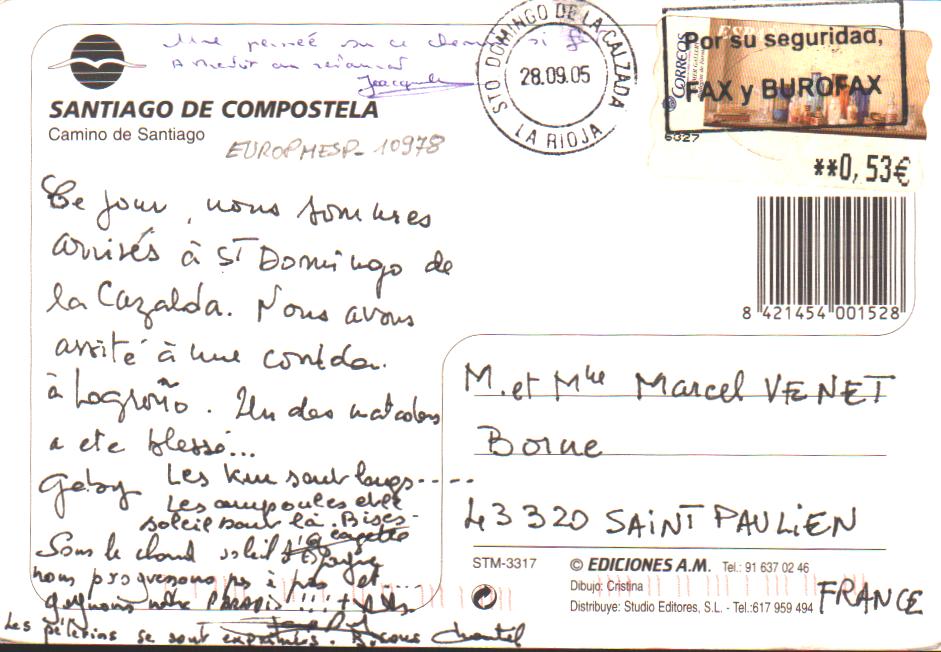 Une pensée sur ce chemin si
Jacqueline
SANTIAGO DE COMPOSTELA
Camino de Santiago
EUROPMESP-10978
STO DOMINGO DE LA CALZADA
28.09.05
LA RIOJA
CORREOS
ESP
Por su seguridad,
FAX y BUROFAX
6627
**0,53€
8 421454 001528
Ce jour, nous sommes
arrivés à ST Domingo de
la Cazalda. Nous avons
assité à une corrida.
à Logroño. Un des matadors
a ete blessé...
Gaby
Les Km sont longs....
Les ampoules et le
soleil sont là. Bises.
Georgette
Sous le chaud soleil d'Espagne
nous progressons pas à pas et....
gagnons notre PARADIS!!!
Les pèlerins se sont exprimés. Bisous Chantal
M. et Mme Marcel VENET
Borne
43320 SAINT PAULIEN
FRANCE
STM-3317
© EDICIONES A.M. Tel.: 91 637 02 46
Dibujo: Cristina
Distribuye: Studio Editores, S.L. - Tel.:617 959 494